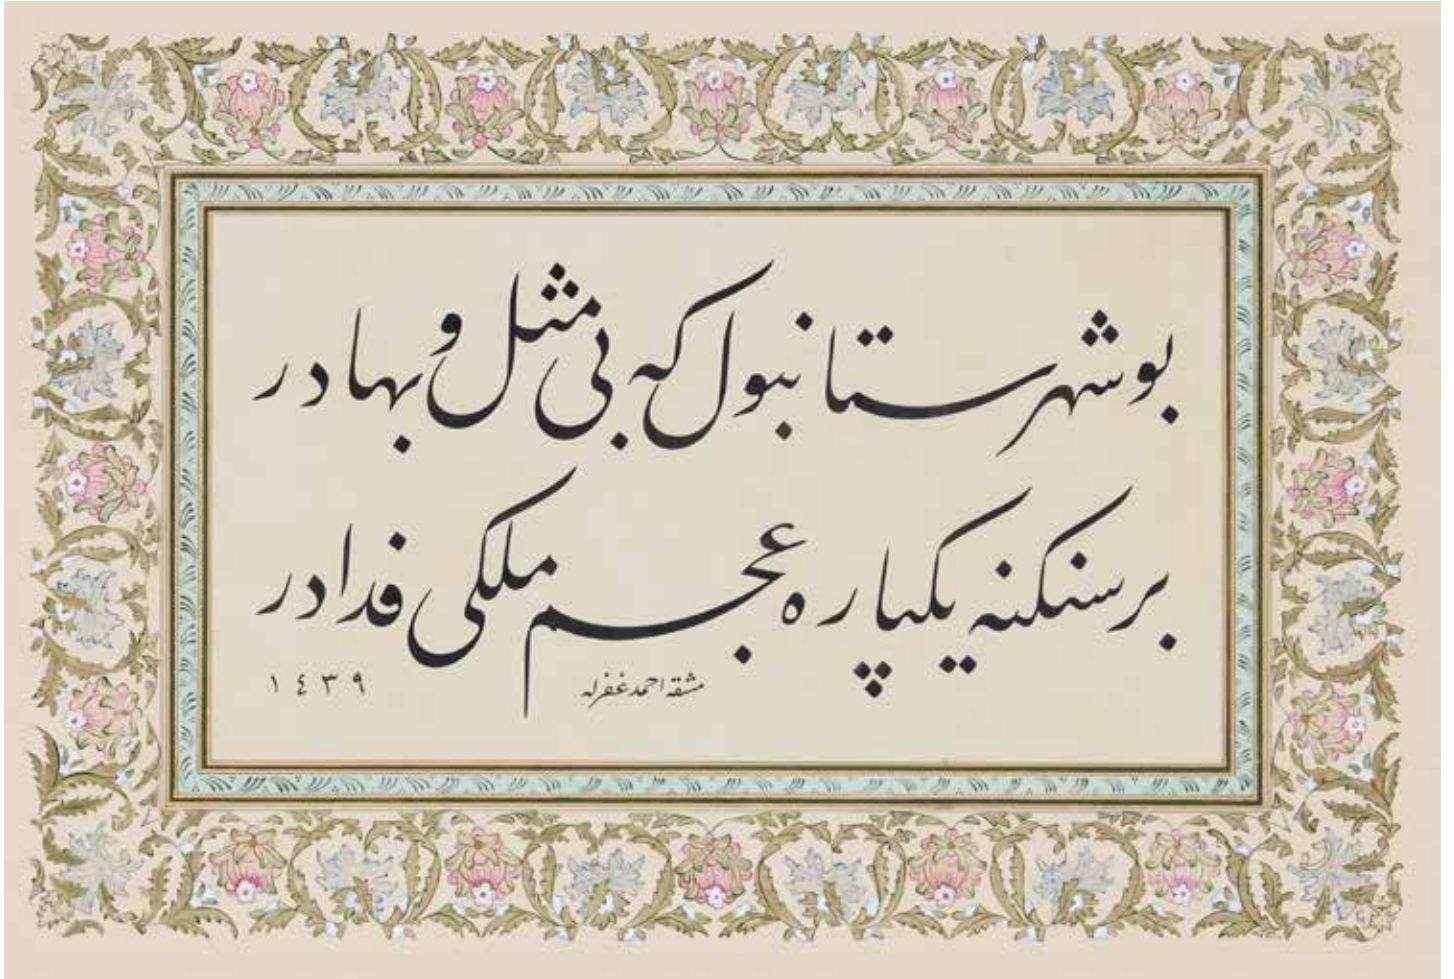 بو شهر ستانبول كه بی مثل و بهادر
بر سنكنه یكپاره عجم ملكی فدادر
مشقه احمد غفرله
١٤٣٩